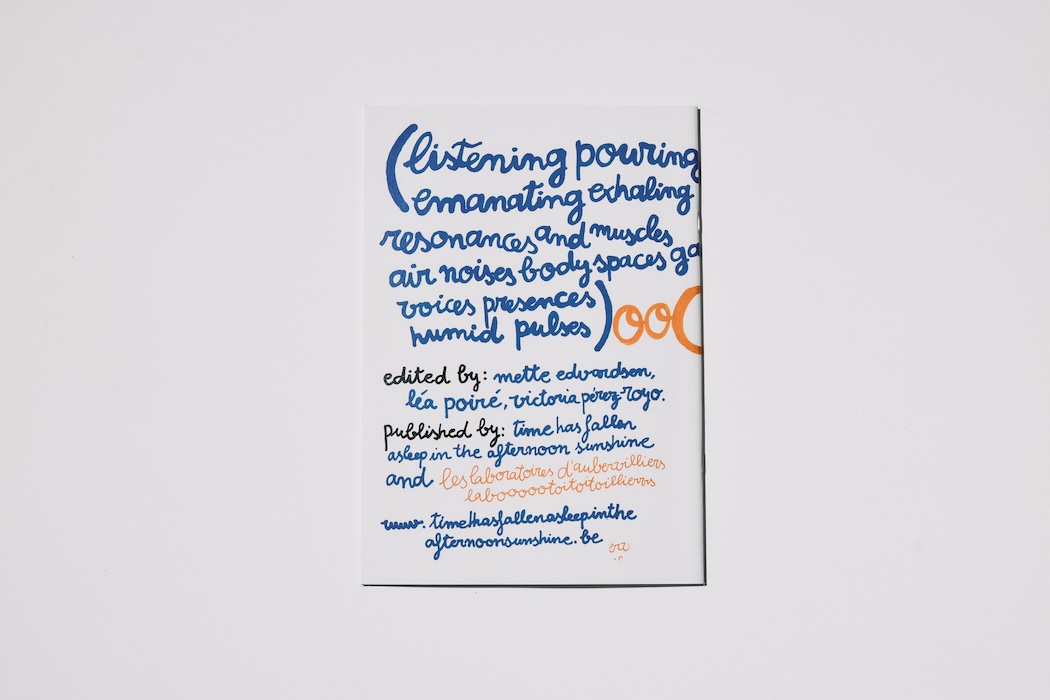 (listening pouring
emanating exhaling
resonances and muscles
air noises body spaces ga
voices presences
humid pulses)ooo
edited by: mette edvardsen,
léa poiré, victoria pérez-royo.
published by: time has fallen
asleep in the afternoon sunshine
and les laboratoires d'aubervilliers
laboooootoitoitoillierrrs
www.timehasfallenasleepinthe
afternoonsunshine.be